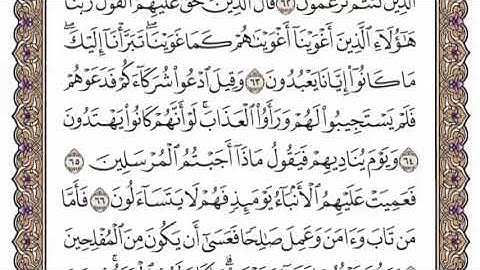 الَّذِينَ كُنتُمْ تَزْعُمُونَ ٦٢ قَالَ الَّذِينَ حَقَّ عَلَيْهِمُ الْقَوْلُ رَبَّنَا
هَٰٓؤُلَآءِ الَّذِينَ أَغْوَيْنَآ أَغْوَيْنَٰهُمْ كَمَا غَوَيْنَا ۖ تَبَرَّأْنَآ إِلَيْكَ ۖ
مَا كَانُوٓا۟ إِيَّانَا يَعْبُدُونَ ٦٣ وَقِيلَ ادْعُوا۟ شُرَكَآءَكُمْ فَدَعَوْهُمْ
فَلَمْ يَسْتَجِيبُوا۟ لَهُمْ وَرَأَوُا۟ الْعَذَابَ ۚ لَوْ أَنَّهُمْ كَانُوا۟ يَهْتَدُونَ
٦٤ وَيَوْمَ يُنَادِيهِمْ فَيَقُولُ مَاذَآ أَجَبْتُمُ الْمُرْسَلِينَ ٦٥
فَعَمِيَتْ عَلَيْهِمُ الْأَنۢبَآءُ يَوْمَئِذٍ فَهُمْ لَا يَتَسَآءَلُونَ ٦٦ فَأَمَّا
مَن تَابَ وَءَامَنَ وَعَمِلَ صَٰلِحًا فَعَسَىٰٓ أَن يَكُونَ مِنَ الْمُفْلِحِينَ